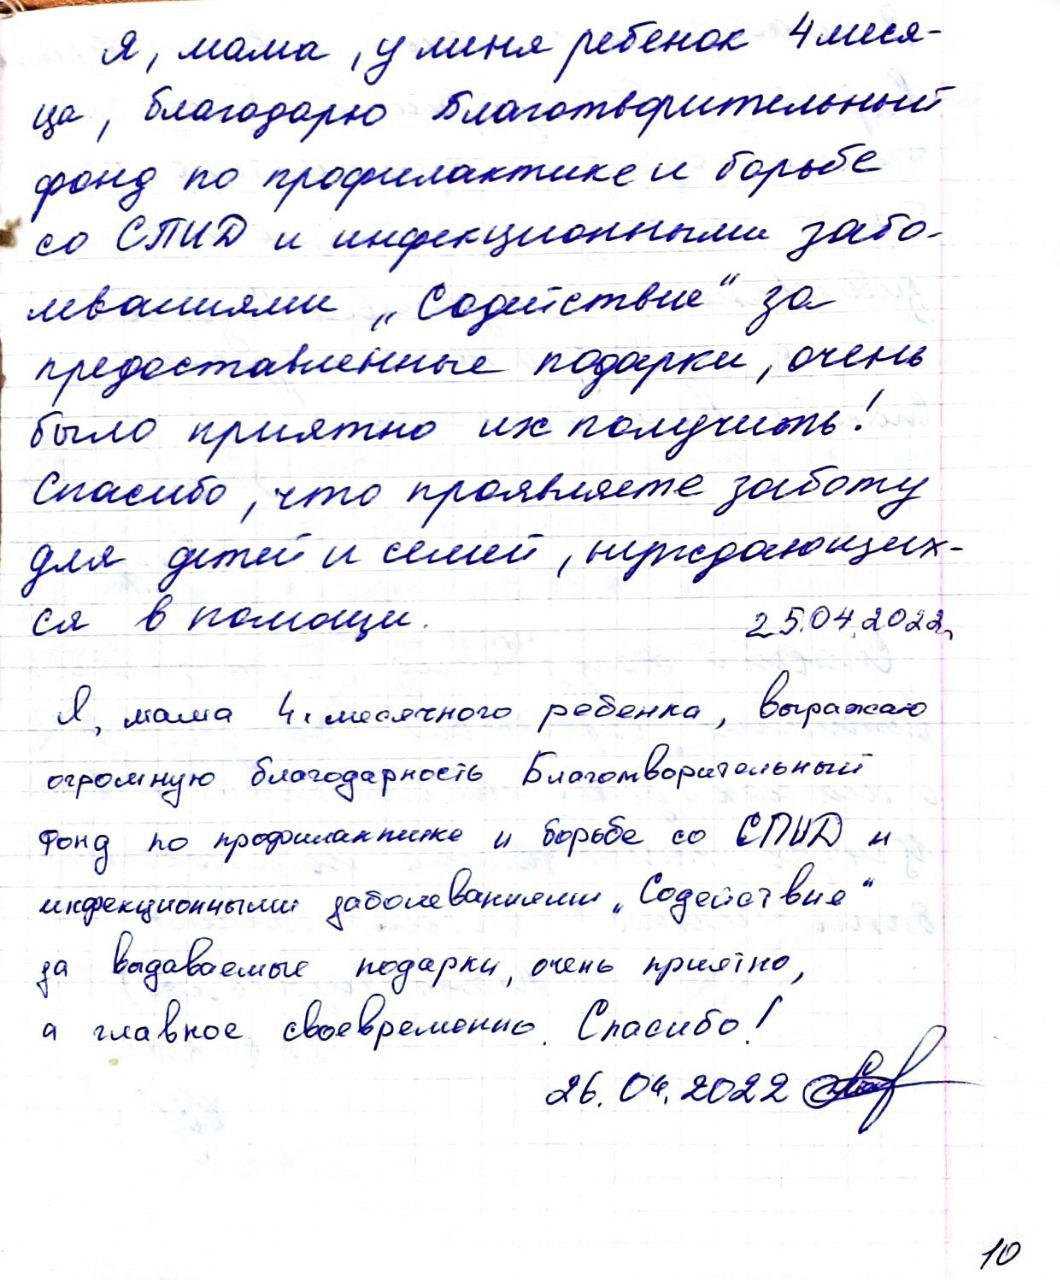 Я, мама, у меня ребенок 4 меся-
ца, благодарю Благотворительный
фонд по профилактике и борьбе
со СПИД и инфекционными забо-
леваниями „Содействие“ за
предоставленные подарки, очень
было приятно их получить!
Спасибо, что проявляете заботу
для детей и семей, нуждающих-
ся в помощи.
25.04.2022г.
Я, мама 4х месячного ребенка, выражаю
огромную благодарность Благотворительный
Фонд по профилактике и борьбе со СПИД и
инфекционными заболеваниями „Содействие“
за выдаваемые подарки, очень приятно,
а главное своевременно. Спасибо!
26.04.2022
10